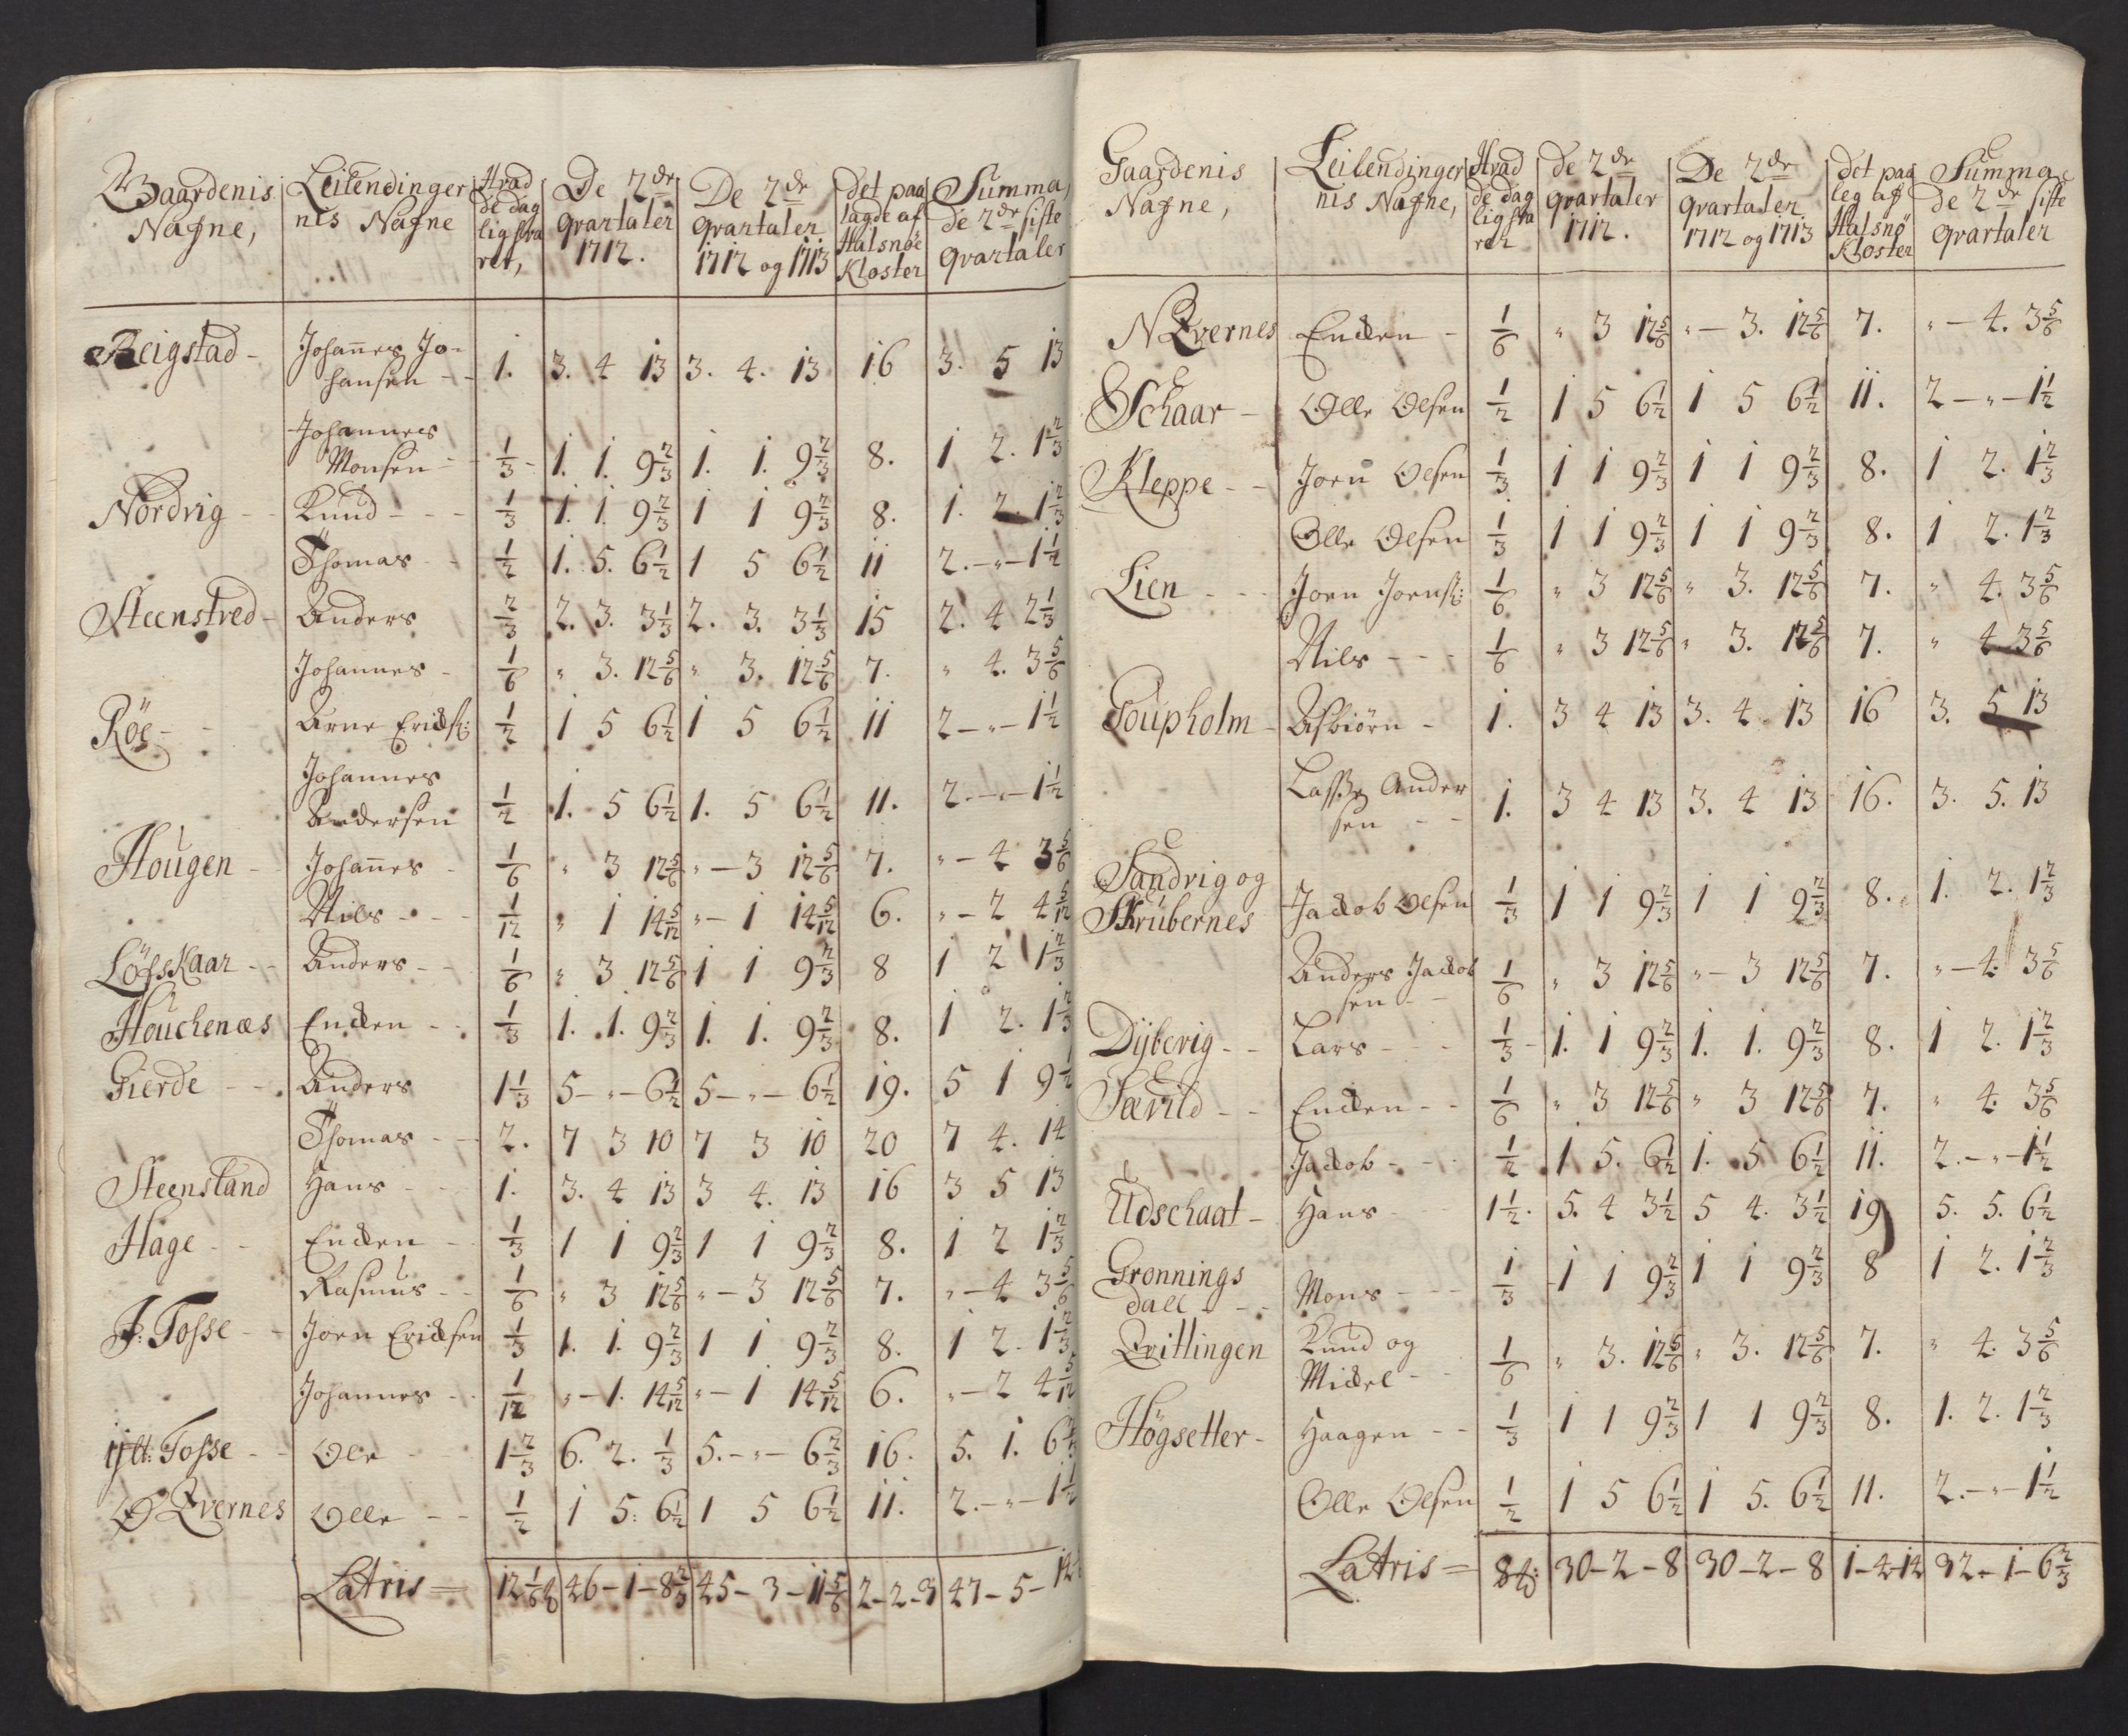 Gaardenis Nafne, | Leilendinger nis Nafne | Hvad de dag lig sva rer, | De 2de qvartaler 1712. | De 2de qvartaler 1712 og 1713 | det paa lagde af Halsnöe Kloster | Summa, de 2de siste qvartaler
Reigstad - | Johannes Jo-
hansen - | 1. | 3. 4 13 | 3. 4. 13 | 16 | 3. 5 13
Johannes
Monsen | 1/3 | 1. 1. 9 2/3 | 1. 1. 9 2/3 | 8. | 1 2. 1 2/3
Nordvig - | Knud - - - | 1/3 | 1. 1. 9 2/3 | 1 1 9 2/3 | 8. | 1. 2. 1 2/3
Thomas - | 1/2 | 1. 5. 6 1/2 | 1 5 6 1/2 | 11 | 2. - " - 1 1/2
Steenstved - | Anders | 2/3 | 2. 3. 3 1/3 | 2. 3. 3 1/3 | 15 | 2. 4 2 1/3
Johannes - | 1/6 | " 3. 12 5/6 | " 3. 12 5/6 | 7. | " 4. 3 5/6
Röe - - | Arne Erichs: | 1/2 | 1 5 6 1/2 | 1 5 6 1/2 | 11 | 2 - " - 1 1/2
Johannes
Andersen | 1/2 | 1. 5 6 1/2 | 1. 5 6 1/2 | 11. | 2. - " - 1 1/2
Hougen - | Johannes - | 1/6 | " 3 12 5/6 | " - 3 12 5/6 | 7. | " - 4 3 5/6
Nils - - - | 1/12 | " 1 14 5/12 | " - 1 14 5/12 | 6. | " - 2 4 5/12
Löfskaar - - | Anders - - | 1/6 | " 3 12 5/6 | 1 1 9 2/3 | 8 | 1 2 1 2/3
Houchenæs | Encken - - | 1/3 | 1. 1. 9 2/3 | 1. 1. 9 2/3 | 8. | 1 2. 1 2/3
Gierde - - | Anders | 1 1/3 | 5 - " - 6 1/2 | 5 - " - 6 1/2 | 19. | 5 1 9 1/2
Thomas - - | 2. | 7 3 10 | 7 3 10 | 20 | 7 4. 14
Steensland | Hans - - | 1. | 3. 4 13 | 3 4. 13 | 16 | 3 5 13
Hage - - | Encken - | 1/3 | 1 1 9 2/3 | 1 1 9 2/3 | 8. | 1 2 1 2/3
Rasmus - - | 1/6 | " 3 12 5/6 | " - 3 12 5/6 | 7. | " - 4 3 5/6
J: Fosse - - | Joen Ericksen | 1/3 | 1. 1. 9 2/3 | 1 1 9 2/3 | 8. | 1 2. 1 2/3
Johannes - - | 1/12 | " - 1. 14 5/12 | " - 1 14 5/12 | 6. | " - 2 4 5/12
ÿtt: Fosse - - | Ole - - | 1 2/3 | 6. 2. 1/3 | 5. - " - 6 2/3 | 16. | 5. 1. 6 2/3
Ø Qvernes | Olle - - | 1/2 | 1 5: 6 1/2 | 1 5 6 1/2 | 11. | 2. - " - 1 1/2
Latris = | 12 1/6 | 46 - 1 - 8 2/3 | 45 - 3 - 11 5/6 | 2 - 2 - 9 | 47 - 5 - 12
Gaardenis Nafne, | Leilendinger nis Nafne, | Hvad de dag lig sva rer | de 2de qvartaler 1712. | De 2de qvartaler 1712 og 1713 | det paa leg af Halsnö Kloster | Summa, de 2de siste qvartaler
N Qvernes | Encken - | 1/6 | " 3 12 5/6 | " - 3. 12 5/6 | 7. | " - 4. 3 5/6
Schaar - | Olle Olsen | 1/2 | 1 5 6 1/2 | 1 5 6 1/2 | 11. | 2 - " - 1 1/2
Kleppe - - | Joen Olsen | 1/3 | 1 1 9 2/3 | 1 1 9 2/3 | 8. | 1 2. 1 2/3
Olle Olsen | 1/3 | 1 1 9 2/3 | 1 1 9 2/3 | 8. | 1 2. 1 2/3
Lien - - - | Joen Joens: | 1/6 | " 3 12 5/6 | " 3. 12 5/6 | 7. | " 4. 3 5/6
Nils - - - | 1/6 | " 3 12 5/6 | " 3. 12 5/6 | 7. | " 4. 3 5/6
Goupholm - | Asbiörn - | 1. | 3 4 13 | 3. 4. 13 | 16 | 3. 5 13
Lasse Ander
sen - - | 1. | 3 4 13 | 3. 4 13 | 16. | 3. 5. 13
Sandvig og
Skrubernes | Jackob Olsen | 1/3 | 1 1 9 2/3 | 1 1 9 2/3 | 8. | 1. 2. 1 2/3
Anders Jackob
sen - - | 1/6 | " 3 12 5/6 | " - 3 12 5/6 | 7. | " - 4. 3 5/6
Dÿbevig - - | Lars - - - | 1/3 | 1. 1 9 2/3 | 1. 1. 9 2/3 | 8. | 1 2. 1 2/3
Sævild - - | Encken - - | 1/6 | " 3 12 5/6 | " 3 12 5/6 | 7. | " 4. 3 5/6
Jackob - - - | 1/2 | 1 5. 6 1/2 | 1. 5 6 1/2 | 11. | 2. - " - 1 1/2
Udschaat - | Hans - - | 1 1/2. | 5. 4 3 1/2 | 5 4. 3 1/2 | 19 | 5. 5. 6 1/2
Gronnings
dall - - - | Mons - - - | 1/3 | 1 1 9 2/3 | 1 1 9 2/3 | 8 | 1 2. 1 2/3
Qvitlingen | Knud og
Mickel - - | 1/6 | " 3. 12 5/6 | " 3. 12 5/6 | 7. | " 4. 3 5/6
Högsetter - | Haagen - - | 1/3 | 1 1 9 2/3 | 1 1 9 2/3 | 8. | 1. 2. 1 2/3
Olle Olsen | 1/2 | 1 5 6 1/2 | 1 5. 6 1/2 | 11. | 2. - " - 1 1/2
Latris = | 8 | 30 - 2 - 8 | 30 - 2 - 8 | 1 - 4 - 14 | 32 - 1 - 6 2/3